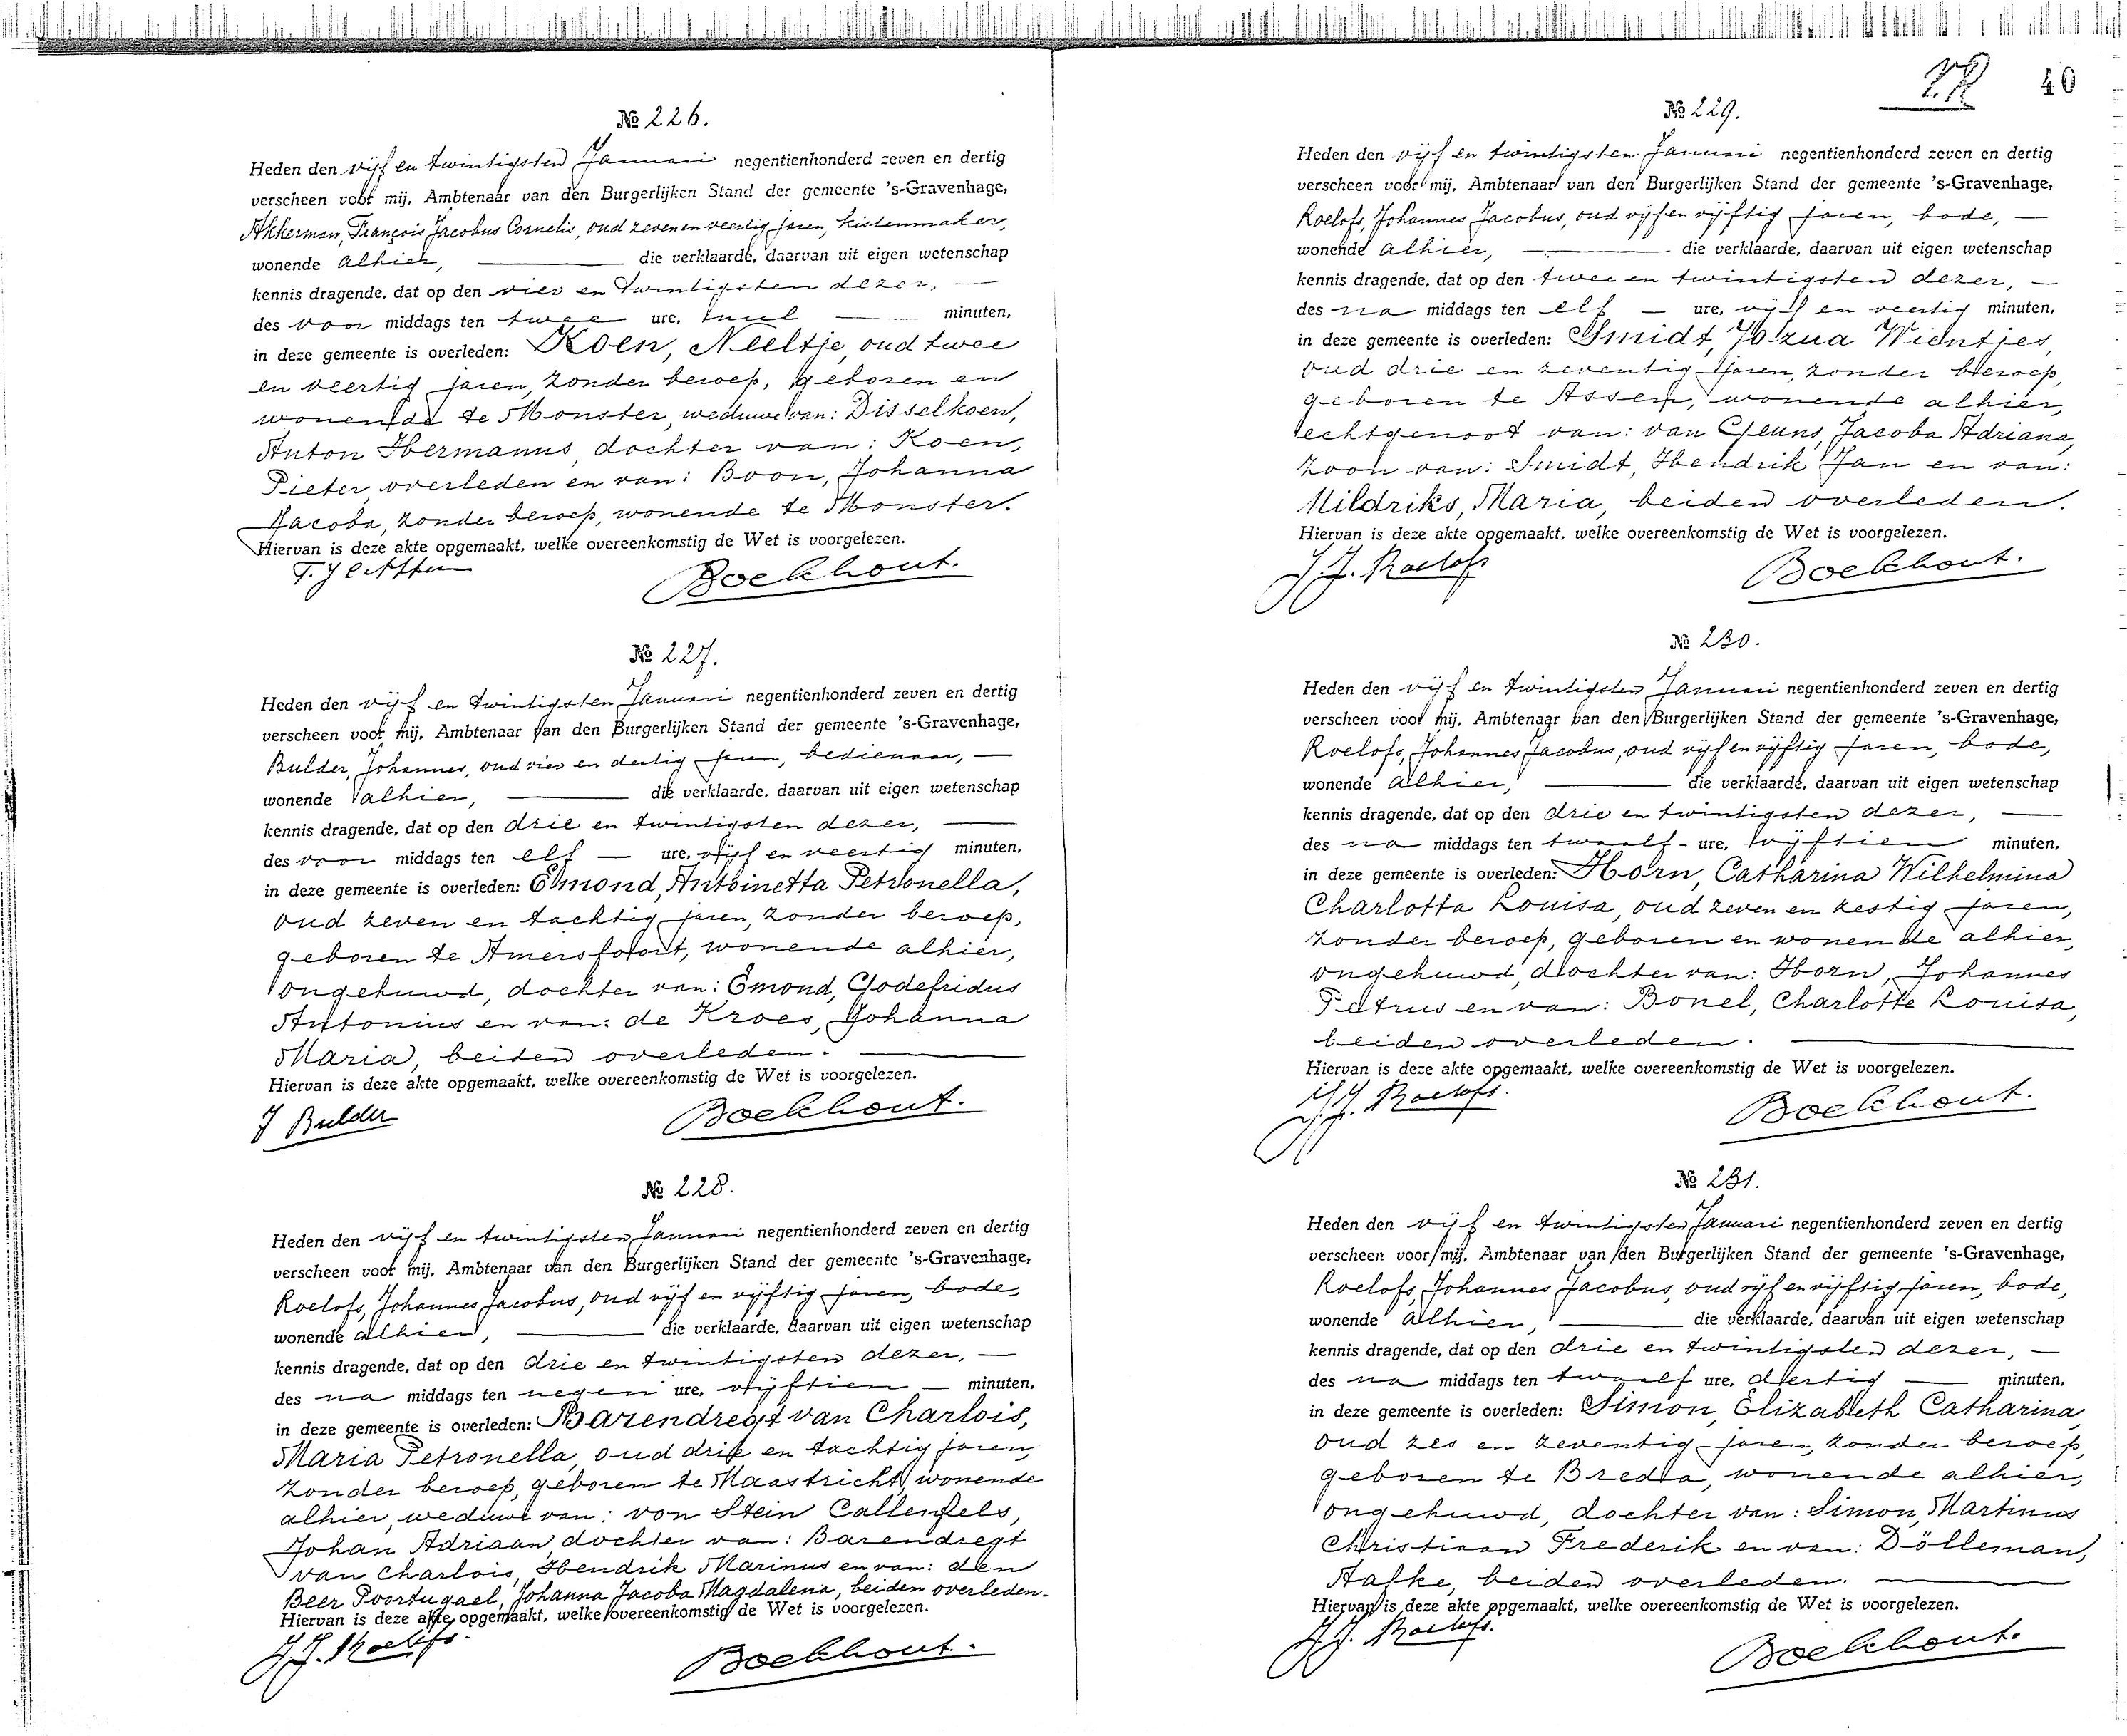 № 226.
Heden den vijf en twintigsten Januari negentienhonderd zeven en dertig
verscheen voor mij, Ambtenaar van den Burgerlijken Stand der gemeente 's-Gravenhage,
Akkerman, François Jacobus Cornelis, oud zeven en veertig jaren, kistenmaker,
wonende alhier, die verklaarde, daarvan uit eigen wetenschap
kennis dragende, dat op den vier en twintigsten dezer,
des voor middags ten twee ure, nul minuten,
in deze gemeente is overleden: Koen, Neeltje, oud twee
en veertig jaren, zonder beroep, geboren en
wonende te Monster, weduwe van: Disselkoen,
Anton Hermanus, dochter van: Koen,
Pieter, overleden en van: Boon, Johanna
Jacoba, zonder beroep, wonende te Monster.
Hiervan is deze akte opgemaakt, welke overeenkomstig de Wet is voorgelezen.
Boekhout.
№ 227.
Heden den vijf en twintigsten Januari negentienhonderd zeven en dertig
verscheen voor mij, Ambtenaar van den Burgerlijken Stand der gemeente 's-Gravenhage,
Bulder, Johannes, oud vier en dertig jaren, bedienaar,
wonende alhier, die verklaarde, daarvan uit eigen wetenschap
kennis dragende, dat op den drie en twintigsten dezer,
des voor middags ten elf ure, vijf en veertig minuten,
in deze gemeente is overleden: Emond, Antoinetta Petronella,
oud zeven en tachtig jaren, zonder beroep,
geboren te Amersfoort, wonende alhier,
ongehuwd, dochter van: Emond, Godefridus
Antonius en van: de Kroes, Johanna
Maria, beiden overleden.
Hiervan is deze akte opgemaakt, welke overeenkomstig de Wet is voorgelezen.
J Bulder Boekhout.
№ 228.
Heden den vijf en twintigsten Januari negentienhonderd zeven en dertig
verscheen voor mij, Ambtenaar van den Burgerlijken Stand der gemeente 's-Gravenhage,
Roelofs, Johannes Jacobus, oud vijf en vijftig jaren, bode,
wonende alhier, die verklaarde, daarvan uit eigen wetenschap
kennis dragende, dat op den drie en twintigsten dezer,
des na middags ten negen ure, vijftien minuten,
in deze gemeente is overleden: Barendregt van Charlois,
Maria Petronella, oud drie en tachtig jaren,
zonder beroep, geboren te Maastricht, wonende
alhier, weduwe van: von Stein Callenfels,
Johan Adriaan, dochter van: Barendregt
van Charlois, Hendrik Marinus en van: den
Beer Poortugael, Johanna Jacoba Magdalena, beiden overleden.
Hiervan is deze akte opgemaakt, welke overeenkomstig de Wet is voorgelezen.
J.J. Roelofs. Boekhout.
40
№ 229.
Heden den vijf en twintigsten Januari negentienhonderd zeven en dertig
verscheen voor mij, Ambtenaar van den Burgerlijken Stand der gemeente 's-Gravenhage,
Roelofs, Johannes Jacobus, oud vijf en vijftig jaren, bode,
wonende alhier, die verklaarde, daarvan uit eigen wetenschap
kennis dragende, dat op den twee en twintigsten dezer,
des na middags ten elf ure, vijf en veertig minuten,
in deze gemeente is overleden: Smidt, Jozua Wientjes,
oud drie en zeventig jaren, zonder beroep,
geboren te Assen, wonende alhier,
echtgenoot van: van Geuns, Jacoba Adriana,
zoon van: Smidt, Hendrik Jan en van:
Mildriks, Maria, beiden overleden.
Hiervan is deze akte opgemaakt, welke overeenkomstig de Wet is voorgelezen.
J.J. Roelofs Boekhout.
№ 230.
Heden den vijf en twintigsten Januari negentienhonderd zeven en dertig
verscheen voor mij, Ambtenaar van den Burgerlijken Stand der gemeente 's-Gravenhage,
Roelofs, Johannes Jacobus, oud vijf en vijftig jaren, bode,
wonende alhier, die verklaarde, daarvan uit eigen wetenschap
kennis dragende, dat op den drie en twintigsten dezer,
des na middags ten twaalf ure, vijftien minuten,
in deze gemeente is overleden: Horn, Catharina Wilhelmina
Charlotta Louisa, oud zeven en zestig jaren,
zonder beroep, geboren en wonende alhier,
ongehuwd, dochter van: Horn, Johannes
Petrus en van: Bonel, Charlotte Louisa,
beiden overleden.
Hiervan is deze akte opgemaakt, welke overeenkomstig de Wet is voorgelezen.
J.J. Roelofs. Boekhout.
№ 231.
Heden den vijf en twintigsten Januari negentienhonderd zeven en dertig
verscheen voor mij, Ambtenaar van den Burgerlijken Stand der gemeente 's-Gravenhage,
Roelofs, Johannes Jacobus, oud vijf en vijftig jaren, bode,
wonende alhier, die verklaarde, daarvan uit eigen wetenschap
kennis dragende, dat op den drie en twintigsten dezer,
des na middags ten twaalf ure, dertig minuten,
in deze gemeente is overleden: Simon, Elizabeth Catharina,
oud zes en zeventig jaren, zonder beroep,
geboren te Breda, wonende alhier,
ongehuwd, dochter van: Simon, Martinus
Christiaan Frederik en van: Dölleman,
Aafke, beiden overleden.
Hiervan is deze akte opgemaakt, welke overeenkomstig de Wet is voorgelezen.
J.J. Roelofs. Boekhout.